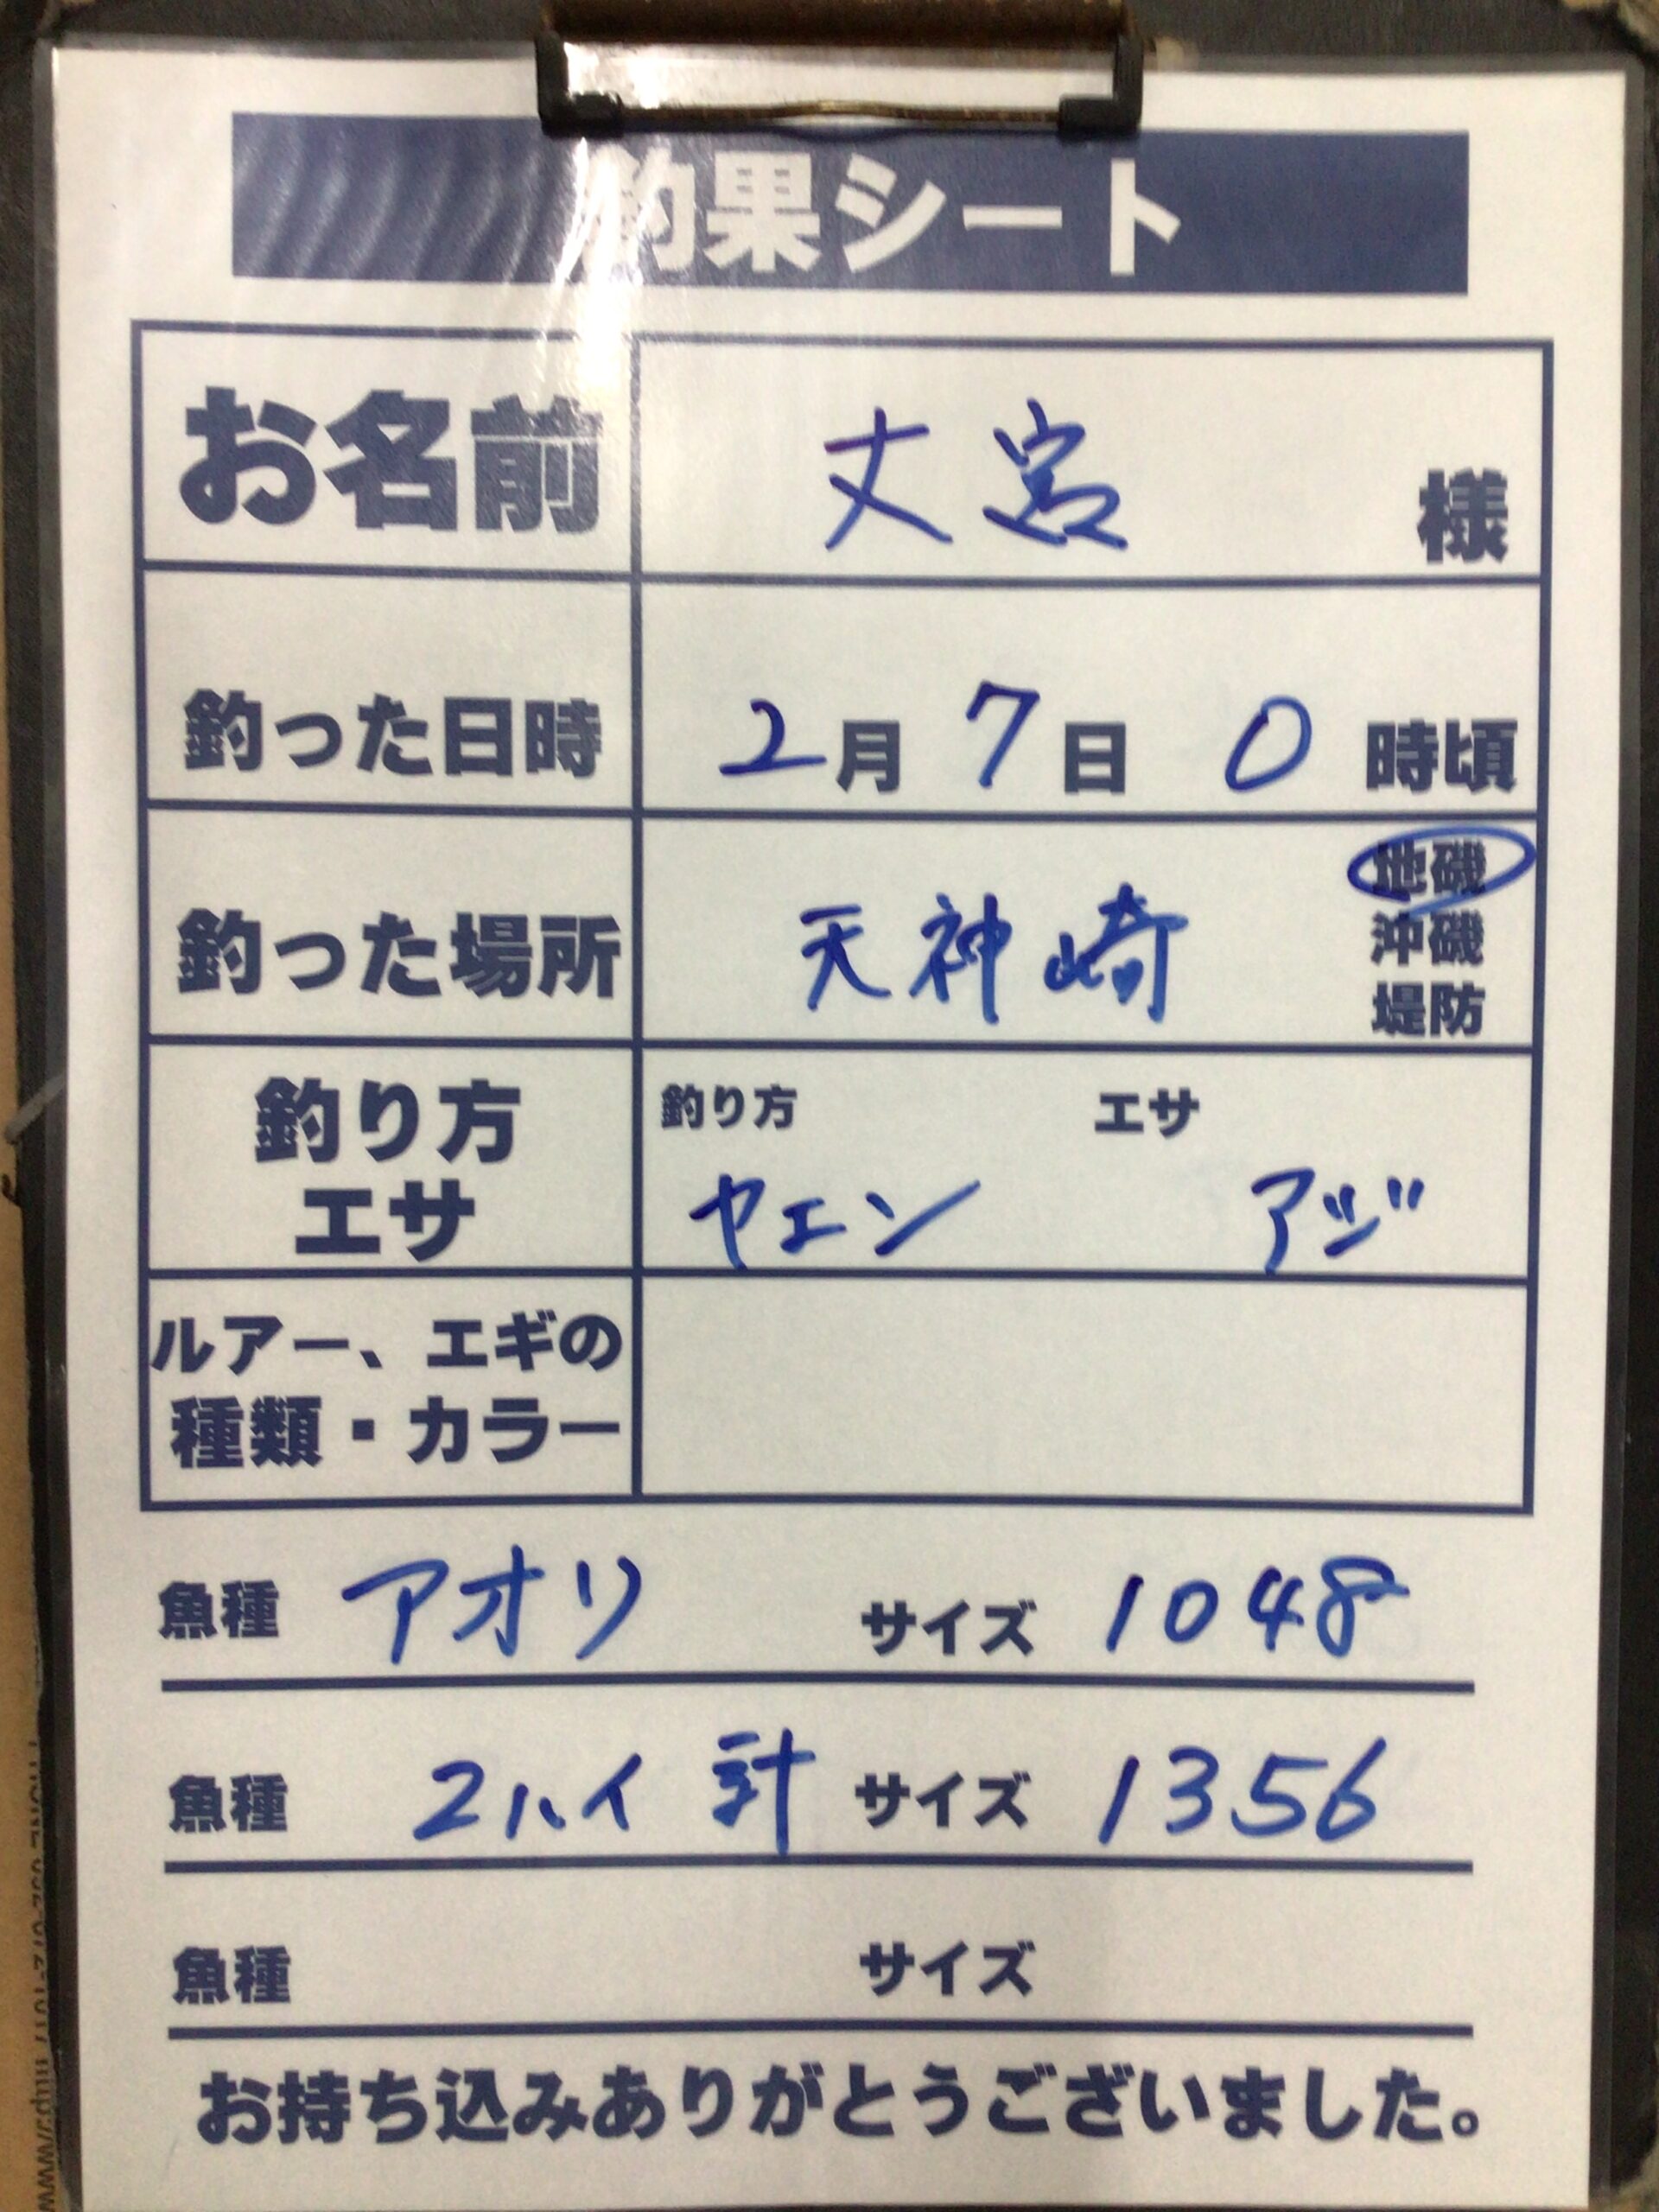 釣果シート
お名前 丈宮 様
釣った日時 2月7日 0時頃
地磯
釣った場所 天神崎 沖磯
堤防
釣り方 釣り方 エサ
エサ ヤエン アジ
ルアー、エギの
種類・カラー
魚種 アオリ サイズ 1048
魚種 2ハイ 計 サイズ 1356
魚種 サイズ
お持ち込みありがとうございました。